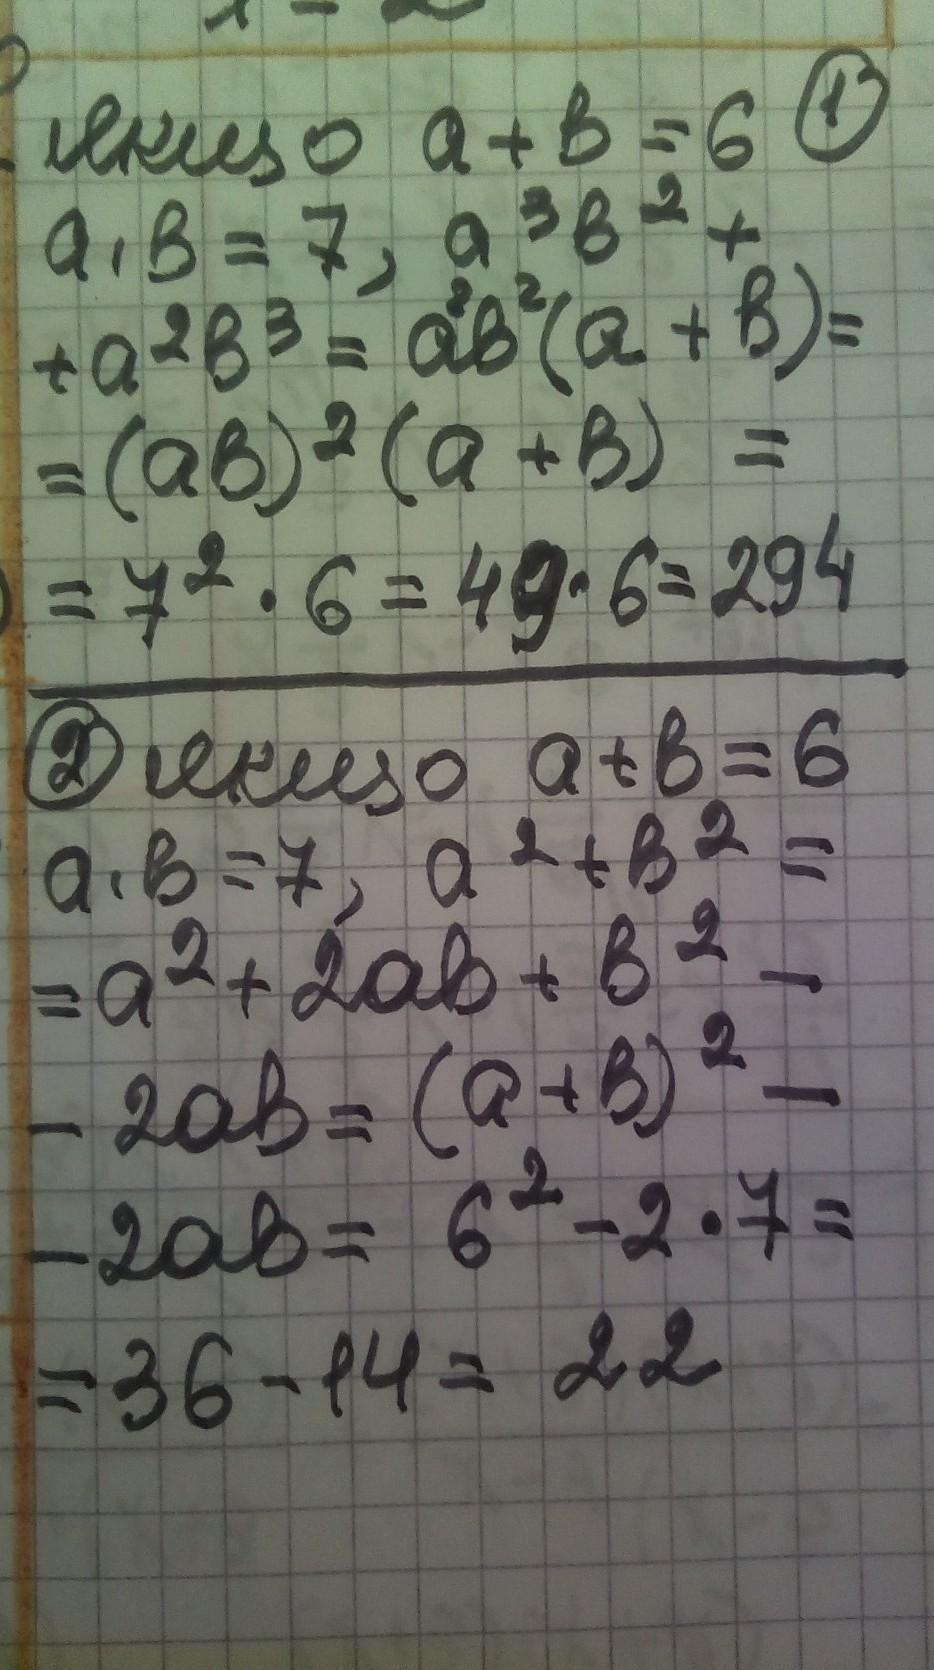 якщо a + b = 6 ①
a · b = 7, a³b² +
+ a²b³ = a²b²(a + b) =
= (ab)² (a + b) =
= 7² · 6 = 49 · 6 = 294
② якщо a + b = 6
a · b = 7, a² + b² =
= a² + 2ab + b² –
– 2ab = (a + b)² –
– 2ab = 6² – 2 · 7 =
= 36 – 14 = 22